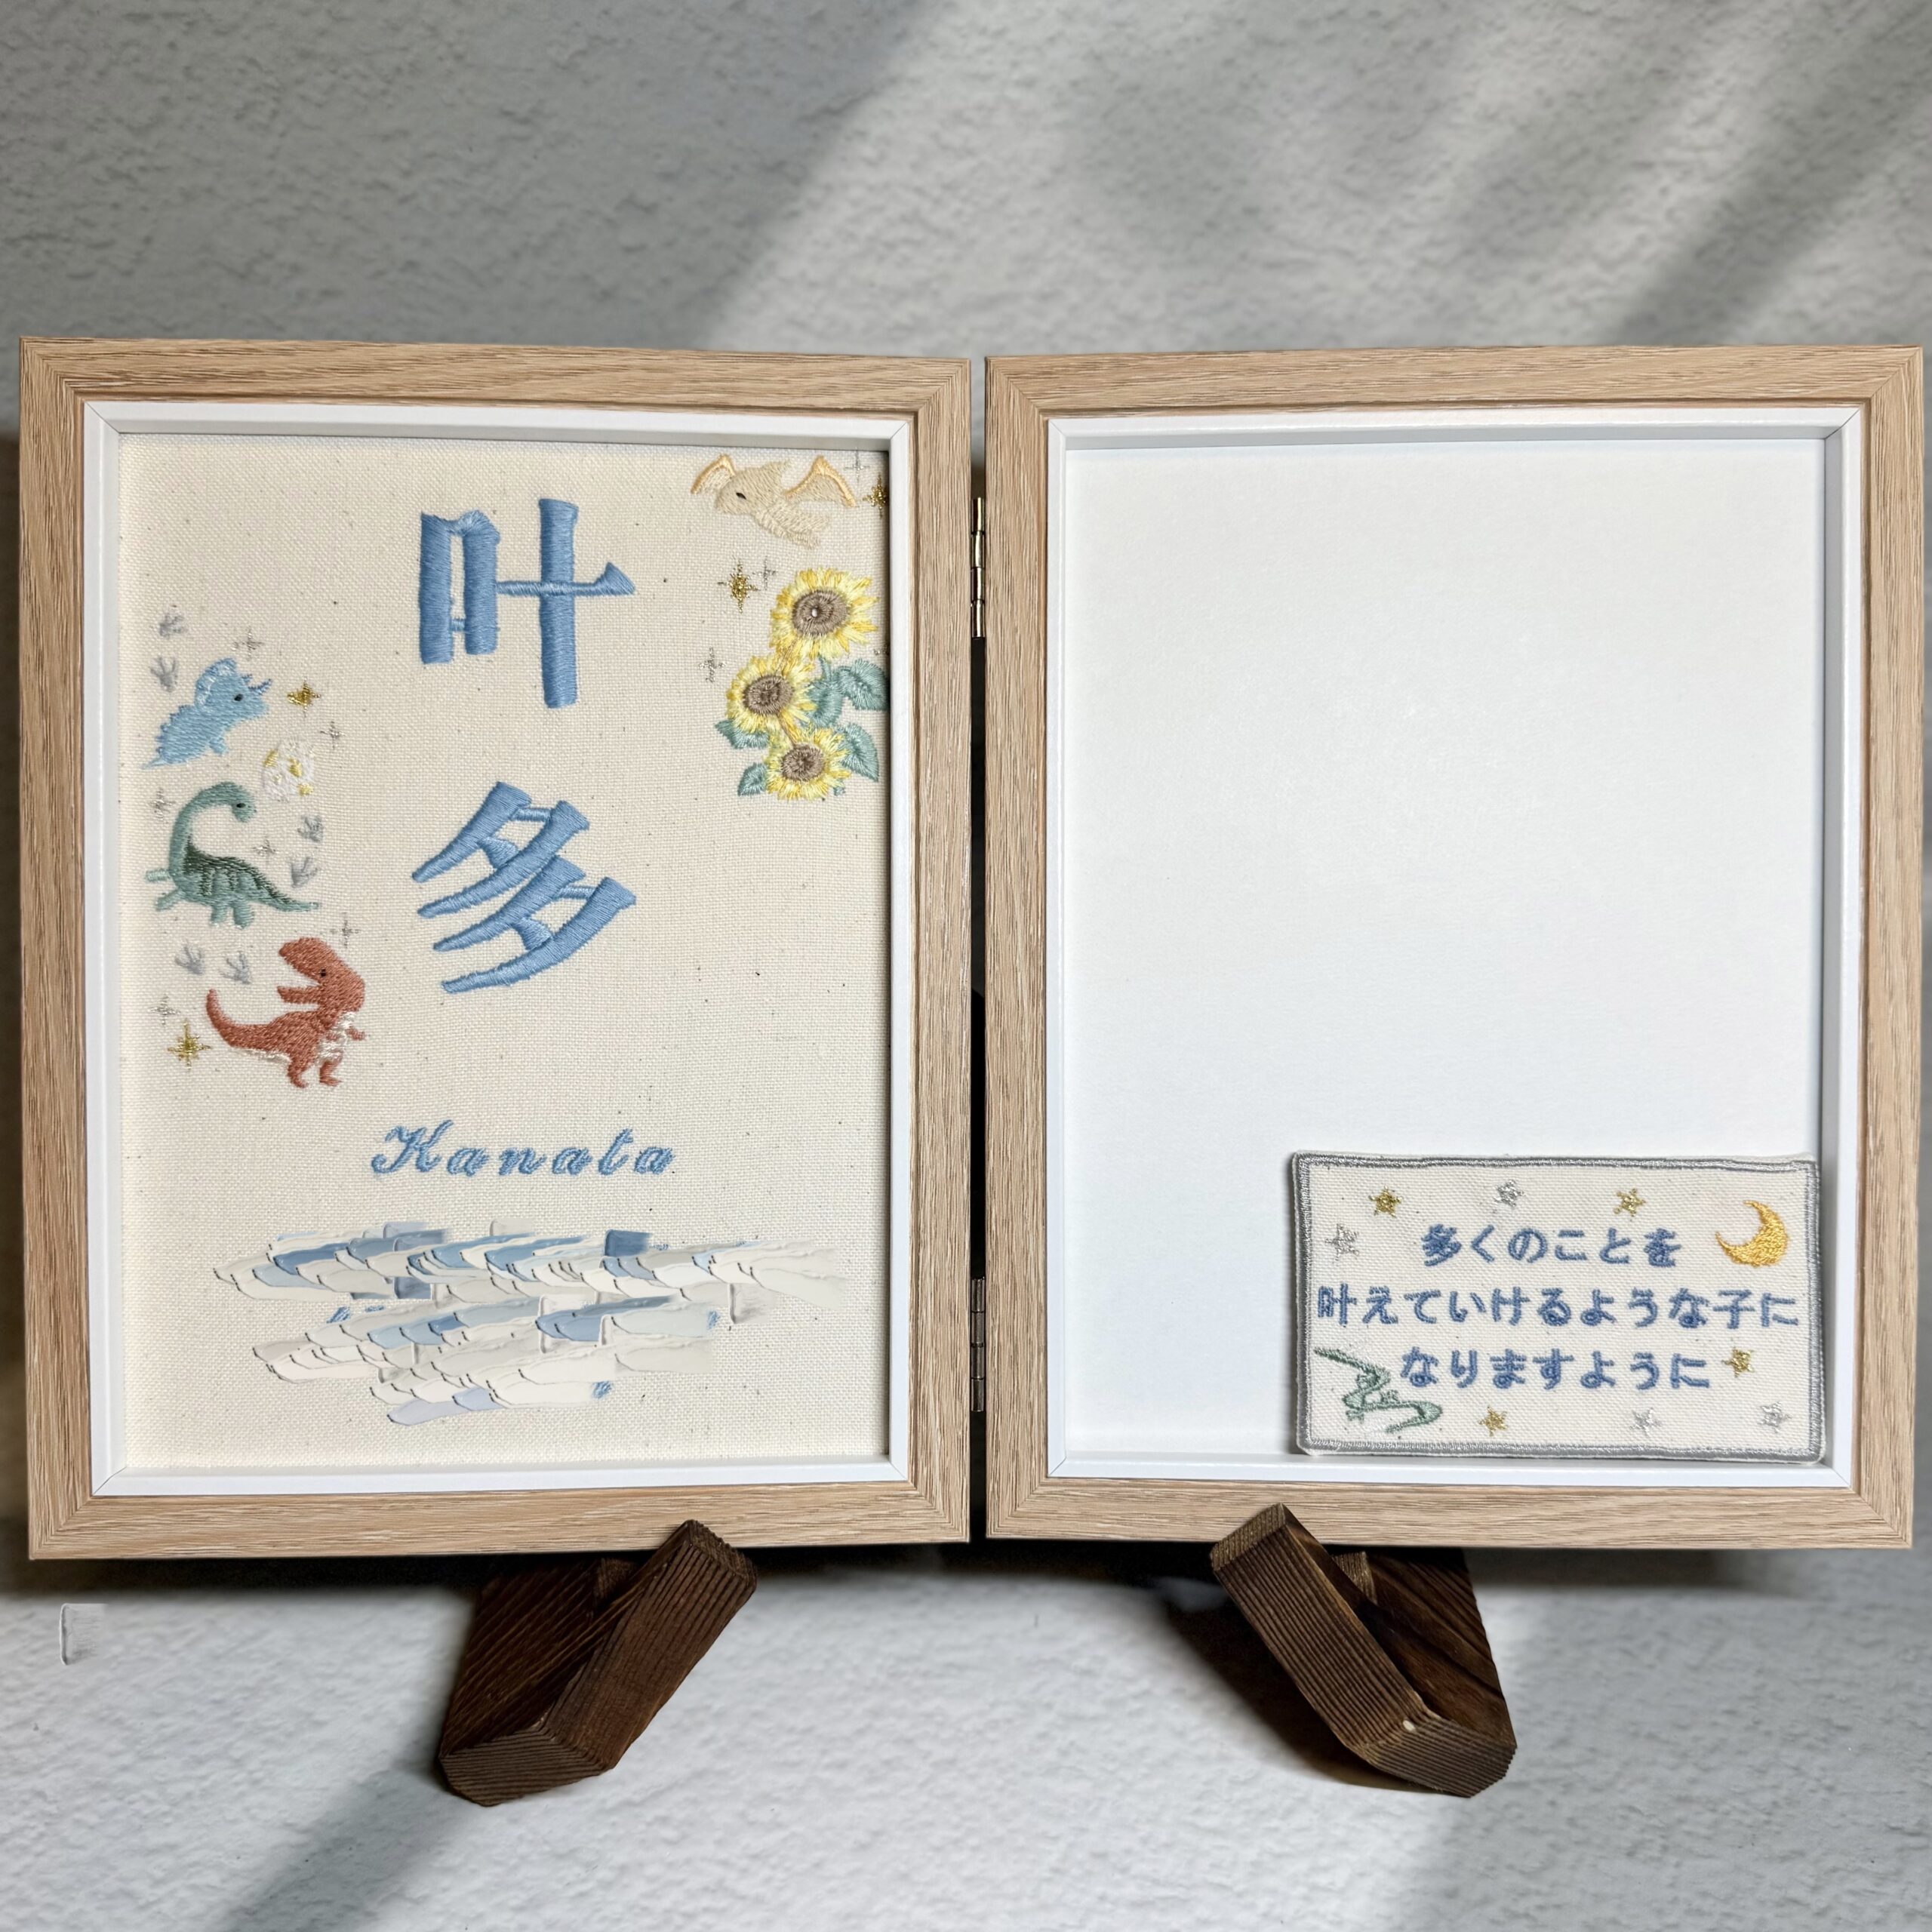 叶
多
Kanata
多くのことを
叶えていけるような子に
なりますように